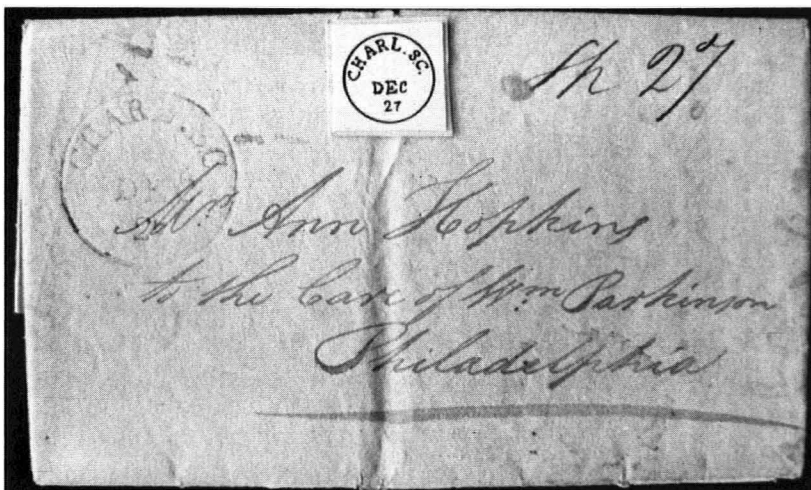 CHARL. S.C.
DEC
27
Sh 27
CHARL. S.C.
Mrs Ann Hopkins
to the Care of Wm Parkinson
Philadelphia